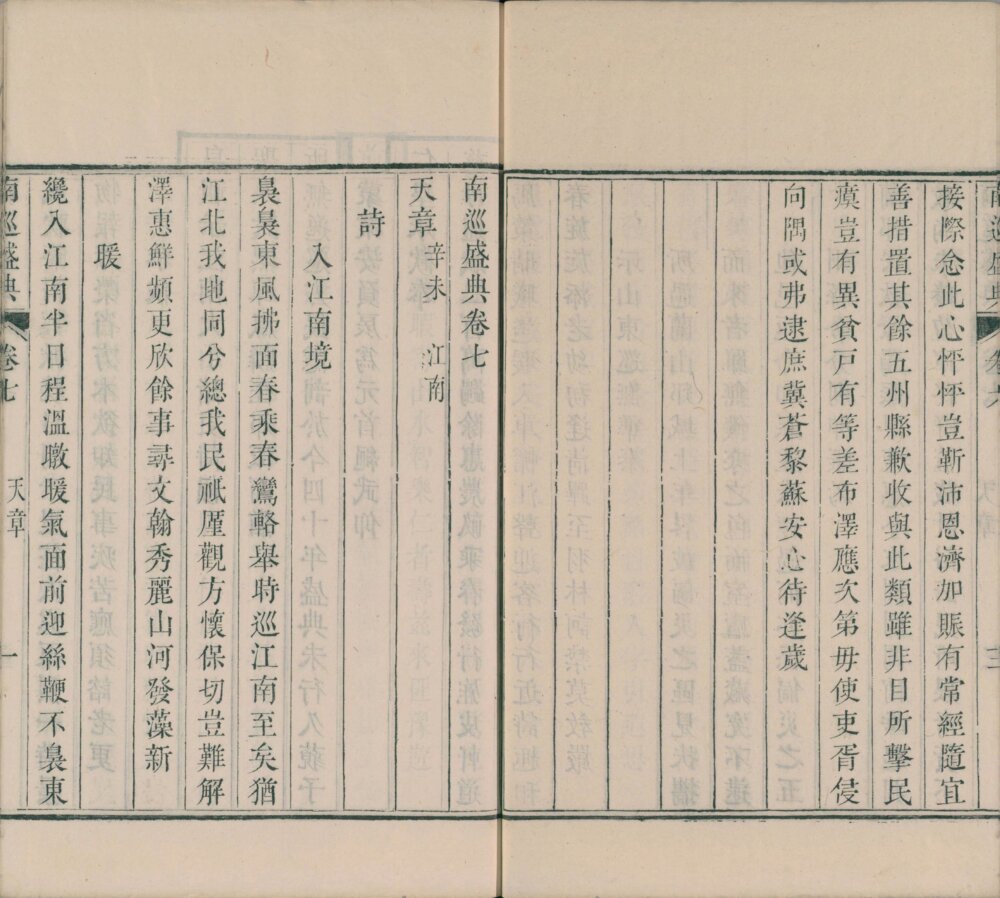 南巡盛典 卷六 三
接際念此心怦怦豈靳沛恩濟加賑有常經隨宜
善措置其餘五州縣歉收與此類雖非目所擊民
瘼豈有異貧戸有等差布澤應次第毋使吏胥侵
向隅或弗逮庶冀蒼黎蘇安心待逢歲
南巡盛典卷七
天章 辛未 江南
詩
入江南境
裊裊東風拂面春乘春鸞輅舉時巡江南至矣猶
江北我地同兮總我民祇厪觀方懷保切豈難解
澤惠鮮頻更欣餘事尋文翰秀麗山河發藻新
暖
纔入江南半日程溫暾暖氣面前迎絲鞭不裊東
南巡盛典 卷七 天章 一